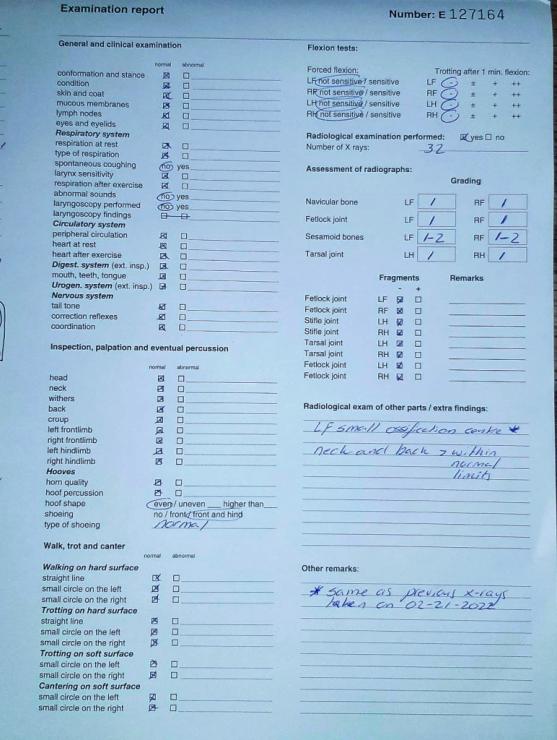 Examination report
Number: E 127164
General and clinical examination
normal abnormal
conformation and stance
condition
skin and coat
mucous membranes
lymph nodes
eyes and eyelids
Respiratory system
respiration at rest
type of respiration
spontaneous coughing no yes
larynx sensitivity
respiration after exercise
abnormal sounds no yes
laryngoscopy performed no yes
laryngoscopy findings
Circulatory system
peripheral circulation
heart at rest
heart after exercise
Digest. system (ext. insp.)
mouth, teeth, tongue
Urogen. system (ext. insp.)
Nervous system
tail tone
correction reflexes
coordination
Inspection, palpation and eventual percussion
normal abnormal
head
neck
withers
back
croup
left frontlimb
right frontlimb
left hindlimb
right hindlimb
Hooves
horn quality
hoof percussion
hoof shape even / uneven ___ higher than___
shoeing no / front / front and hind
type of shoeing normal
Walk, trot and canter
normal abnormal
Walking on hard surface
straight line
small circle on the left
small circle on the right
Trotting on hard surface
straight line
small circle on the left
small circle on the right
Trotting on soft surface
small circle on the left
small circle on the right
Cantering on soft surface
small circle on the left
small circle on the right
Flexion tests:
Forced flexion: Trotting after 1 min. flexion:
LF not sensitive / sensitive LF - ± + ++
RF not sensitive / sensitive RF - ± + ++
LH not sensitive / sensitive LH - ± + ++
RH not sensitive / sensitive RH - ± + ++
Radiological examination performed: yes no
Number of X rays: 32
Assessment of radiographs:
Grading
Navicular bone LF 1 RF 1
Fetlock joint LF 1 RF 1
Sesamoid bones LF 1-2 RF 1-2
Tarsal joint LH 1 RH 1
Fragments Remarks
- +
Fetlock joint LF
Fetlock joint RF
Stifle joint LH
Stifle joint RH
Tarsal joint LH
Tarsal joint RH
Fetlock joint LH
Fetlock joint RH
Radiological exam of other parts / extra findings:
LF small ossification centre *
neck and back > within
normal
limits
Other remarks:
* same as previous x-rays
taken on 02-21-2022